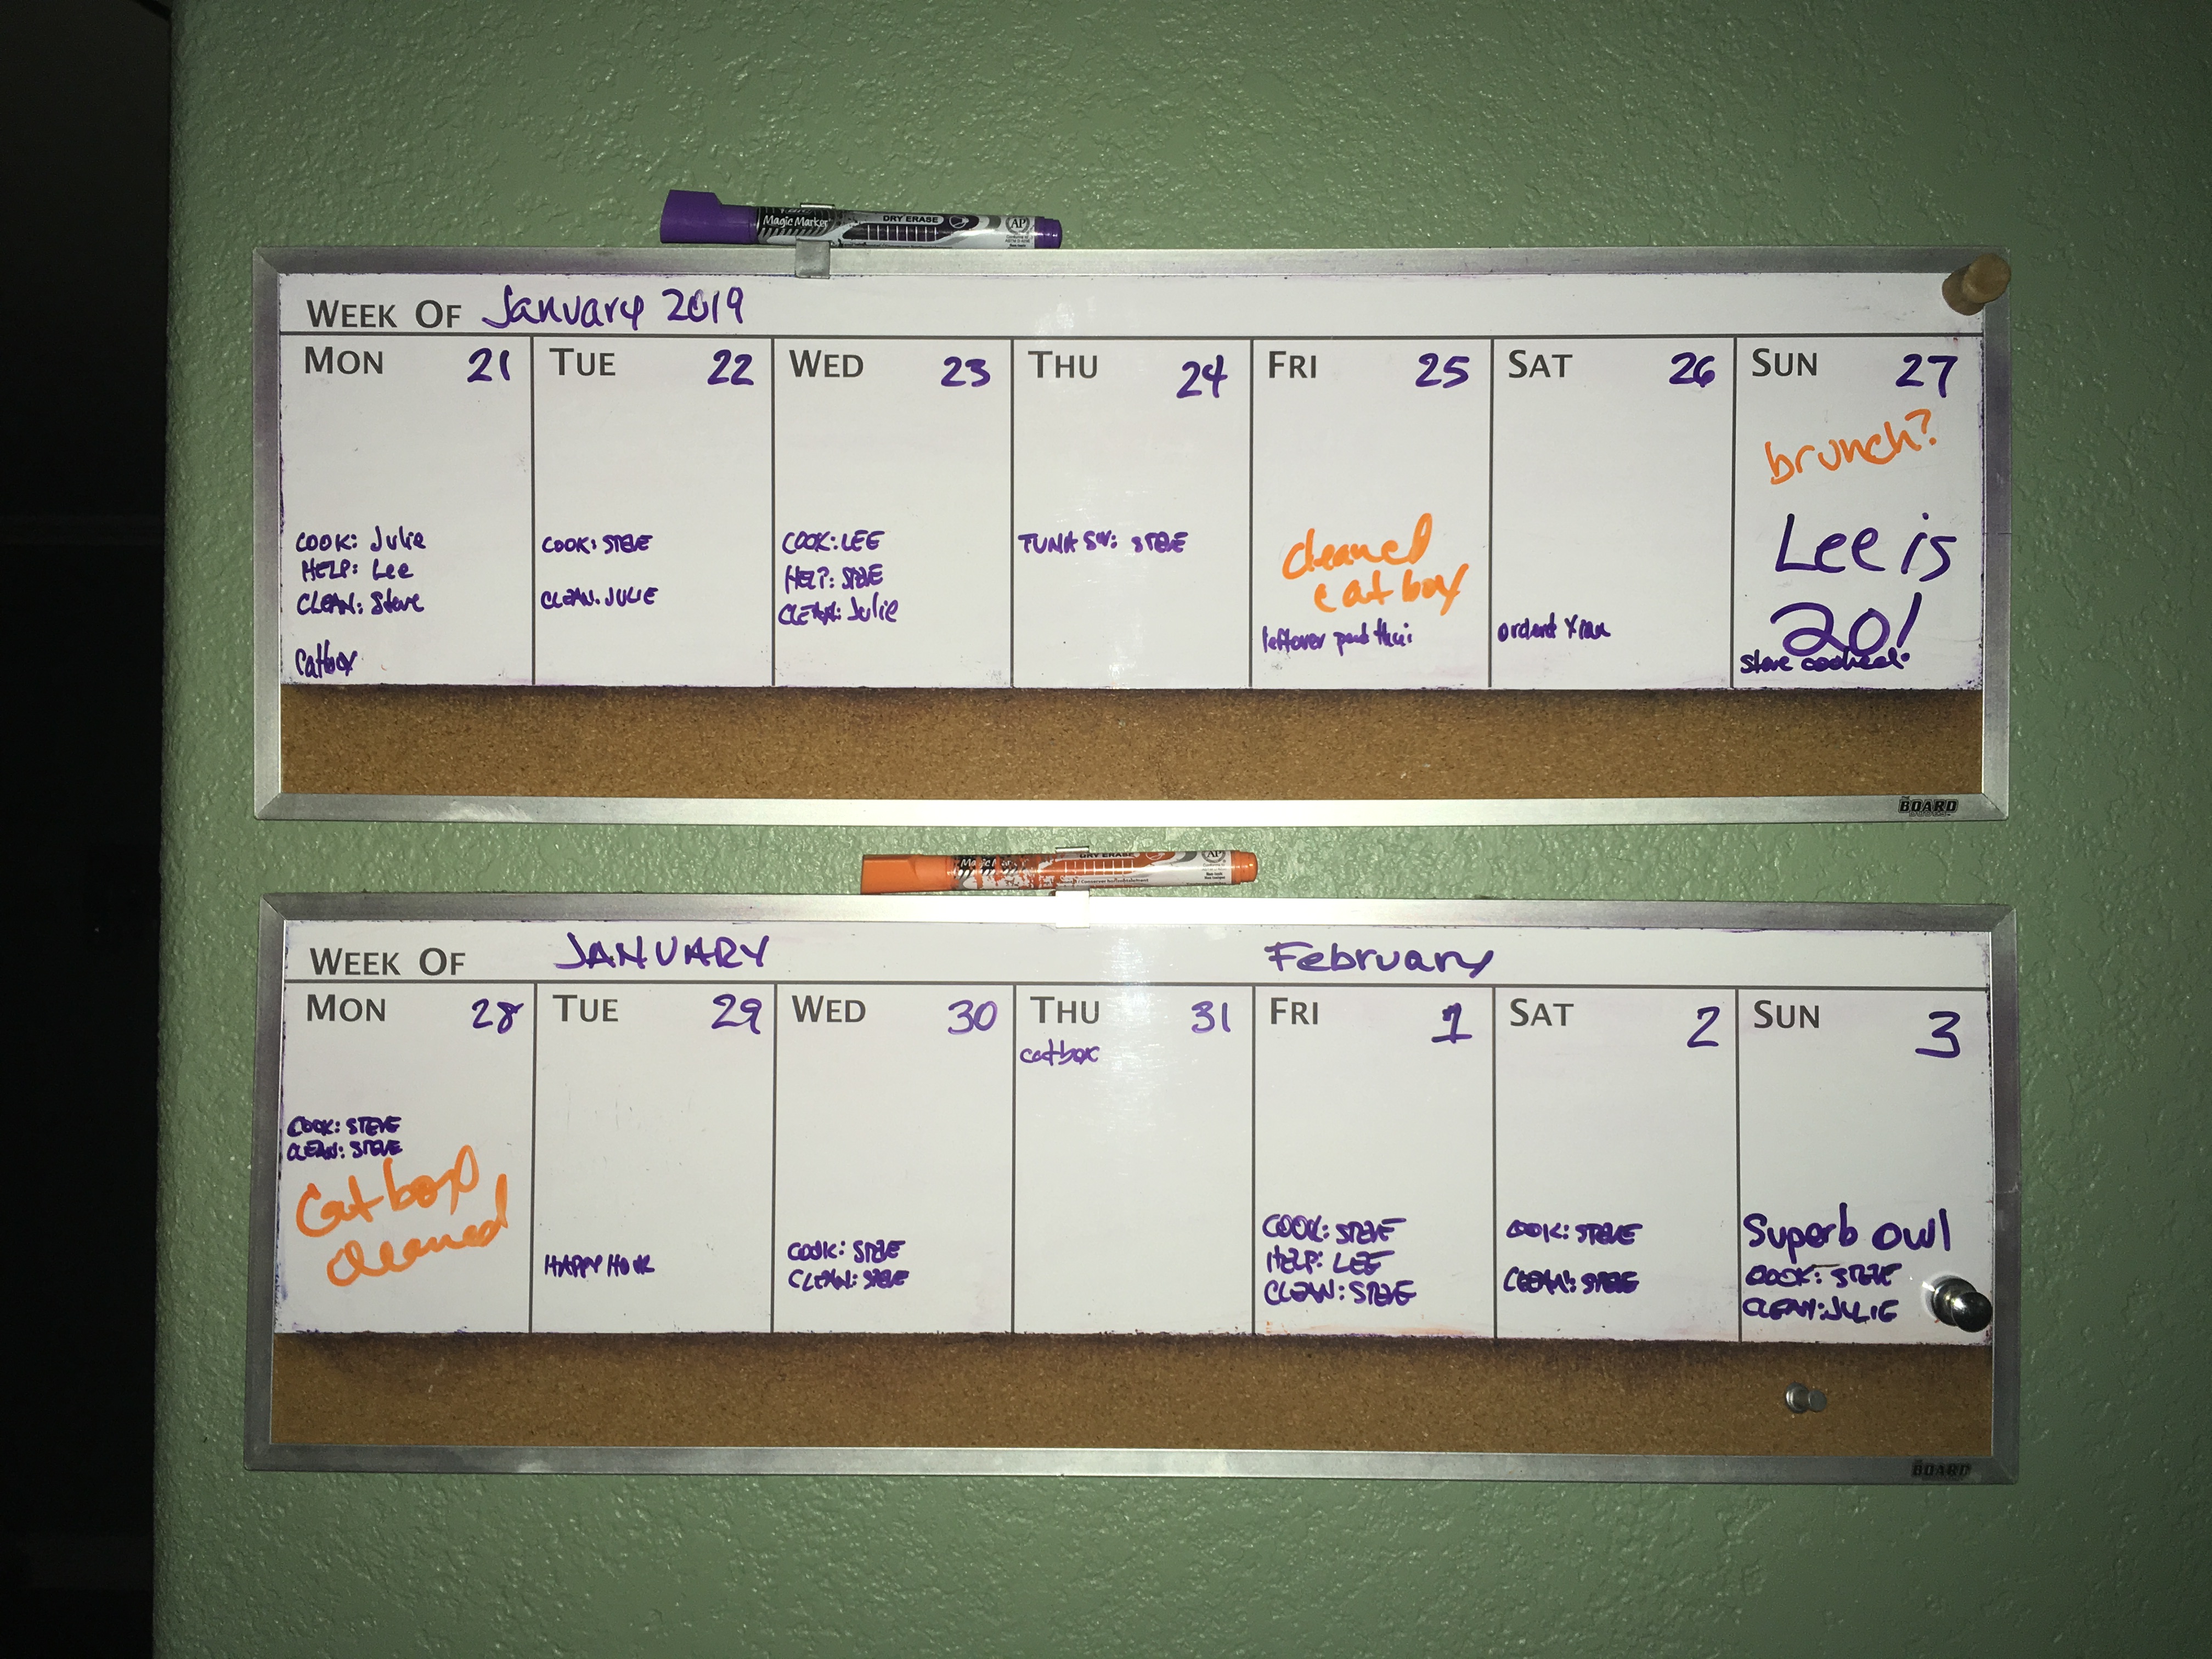 Magic Marker DRY ERASE AP
WEEK OF January 2019
MON 21 TUE 22 WED 23 THU 24 FRI 25 SAT 26 SUN 27
brunch?
Lee is
20!
Steve cooked.
COOK: Julie
HELP: Lee
CLEAN: Steve
Catbox
COOK: STEVE
CLEAN. JULIE
COOK: LEE
HELP: STEVE
CLEAN: Julie
TUNA SW: STEVE
cleaned
cat box
leftover pad thai
BOARD
DRY ERASE AP
WEEK OF JANUARY February
MON 28 TUE 29 WED 30 THU 31 FRI 1 SAT 2 SUN 3
COOK: STEVE
CLEAN: STEVE
Cat box
cleaned
HAPPY HOUR
COOK: STEVE
CLEAN: STEVE
catbox
COOK: STEVE
HELP: LEE
CLEAN: STEVE
COOK: STEVE
CLEAN: STEVE
Superb owl
COOK: STEVE
CLEAN: JULIE
BOARD